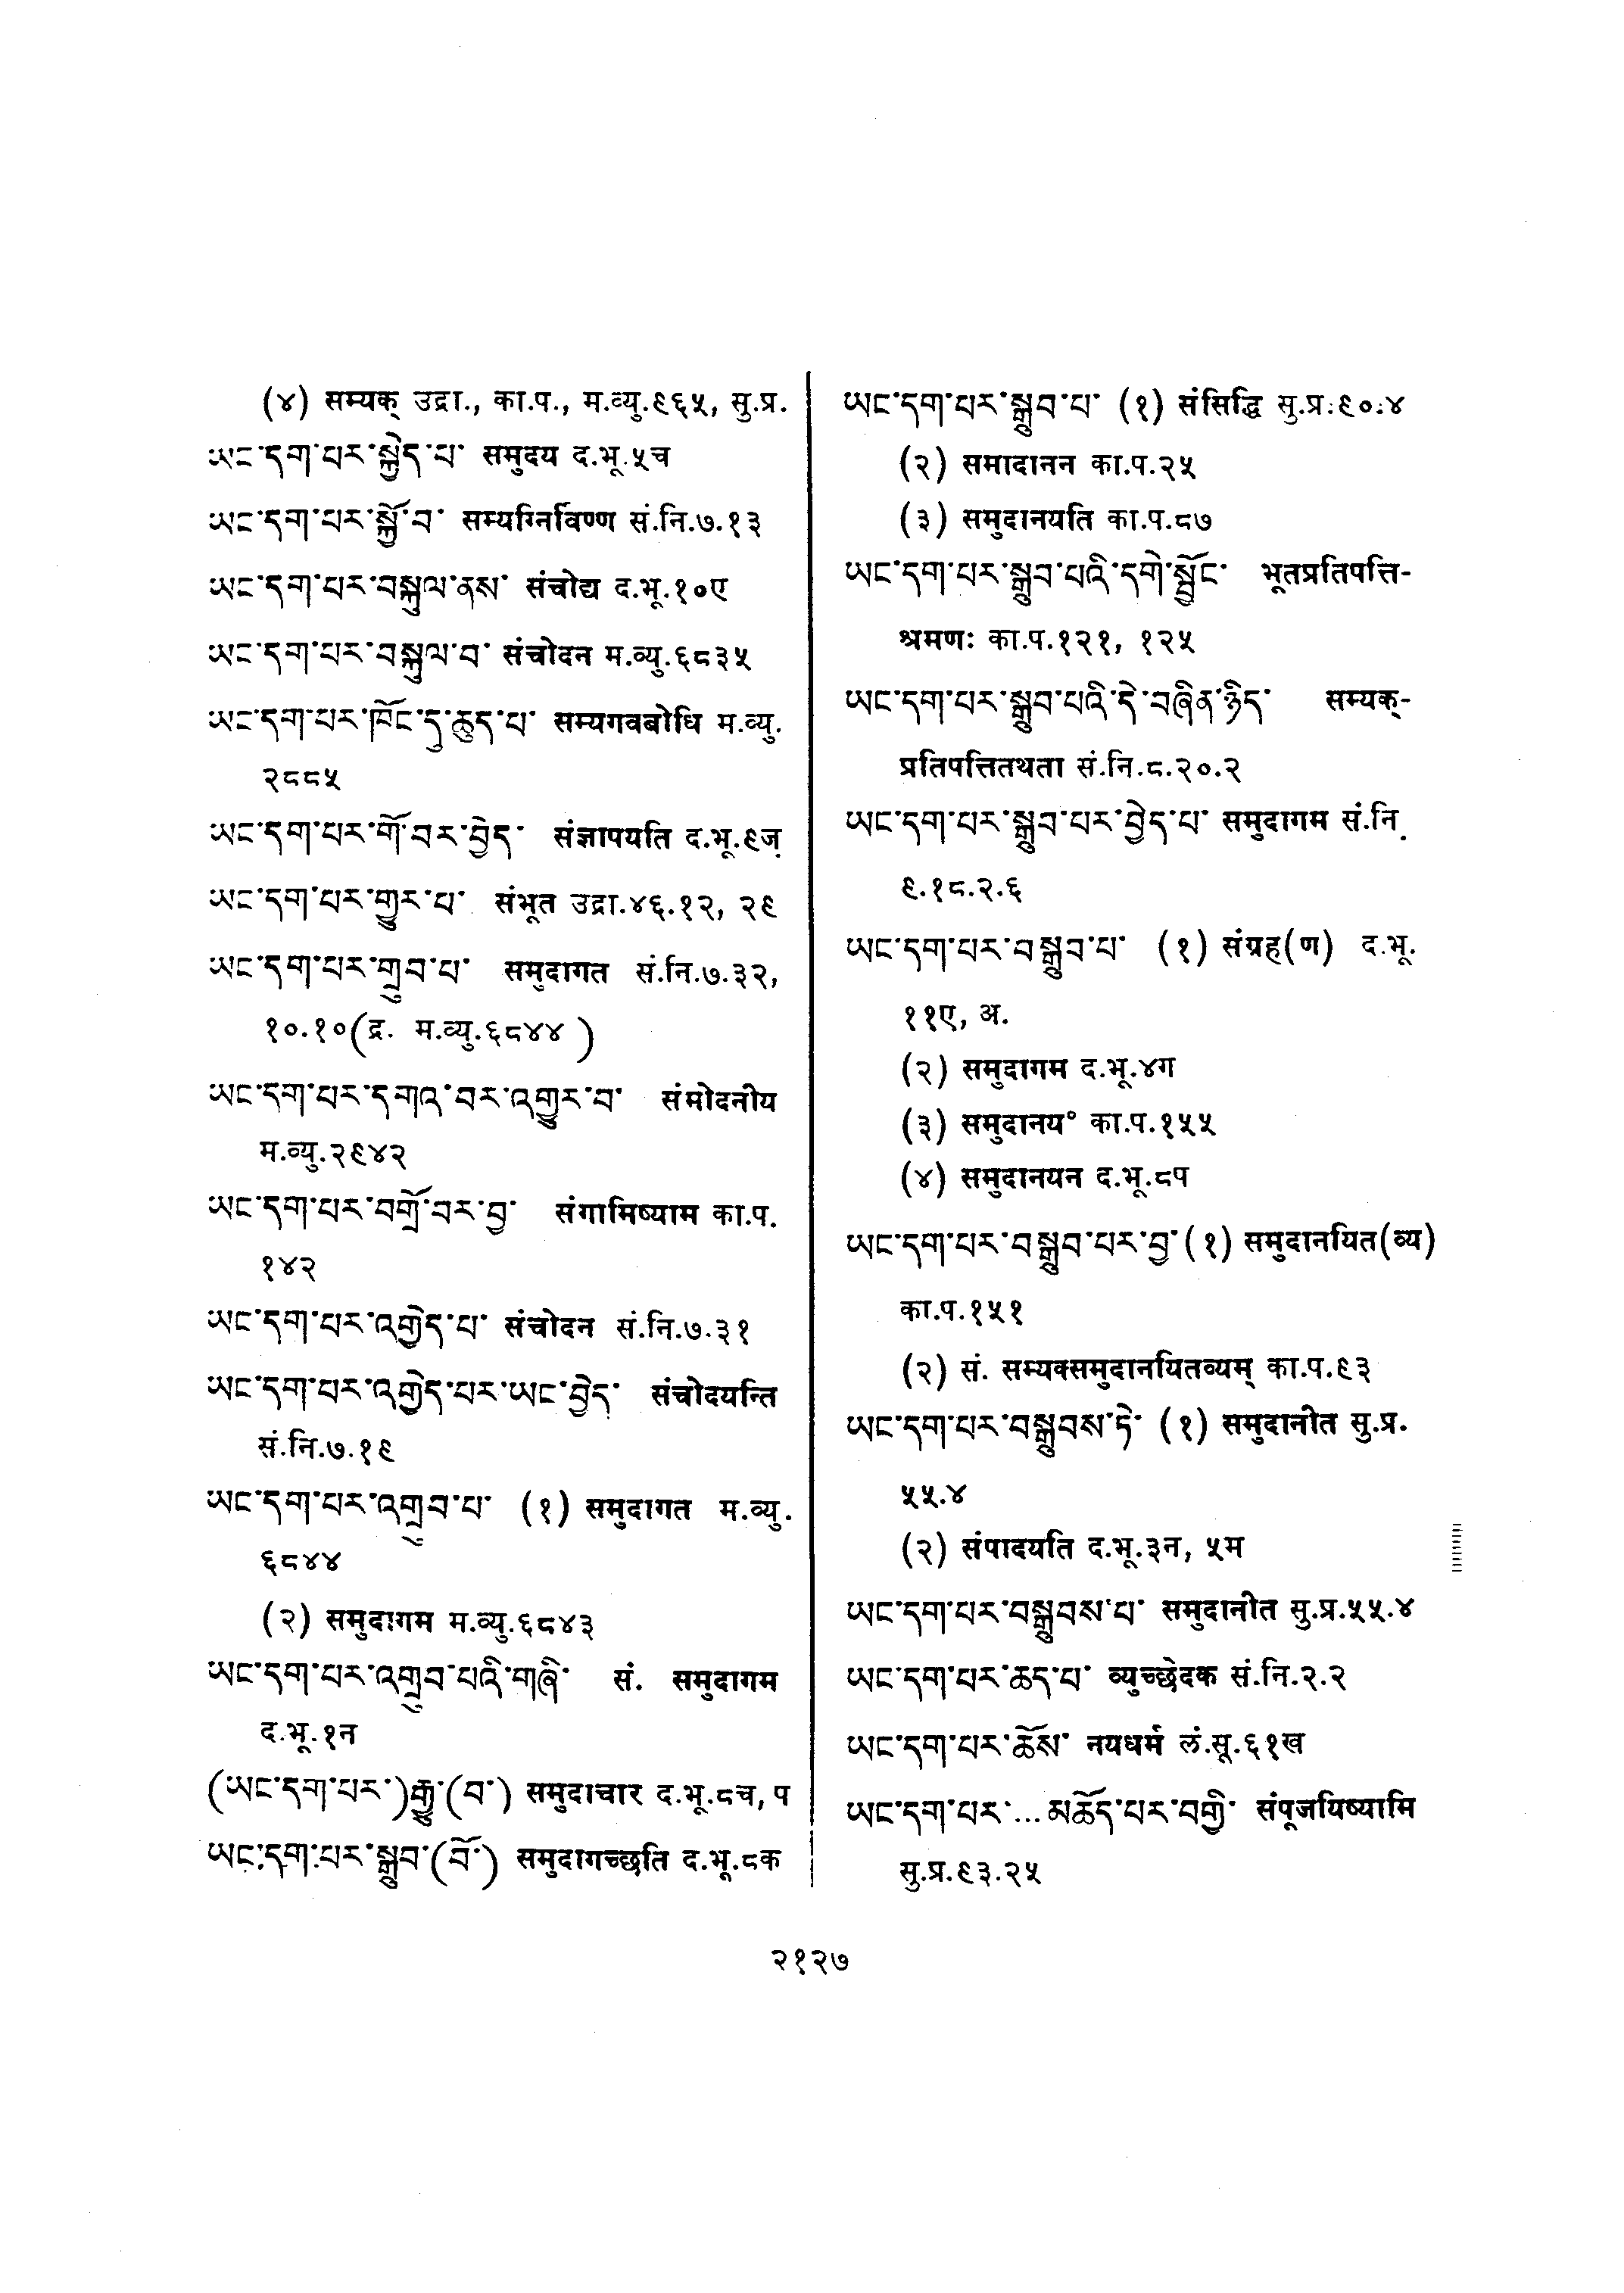 (४) सम्यक् उद्रा., का.प., म.व्यु.९६५, सु.प्र.
ཡང་དག་པར་སྐྱེད་པ་ समुदय द.भू.५च
ཡང་དག་པར་སྐྱོ་བ་ सम्यग्निर्विण्ण सं.नि.७.१३
ཡང་དག་པར་བསྐུལ་ནས་ संचोद्य द.भू.१०ए
ཡང་དག་པར་བསྐུལ་བ་ संचोदन म.व्यु.६८३५
ཡང་དག་པར་ཁོང་དུ་ཆུད་པ་ सम्यगवबोधि म.व्यु.
२८८५
ཡང་དག་པར་གོ་བར་བྱེད་ संज्ञापयति द.भू.९ज
ཡང་དག་པར་གྱུར་པ་ संभूत उद्रा.४६.१२, २९
ཡང་དག་པར་གྲུབ་པ་ समुदागत सं.नि.७.३२,
१०.१०(द्र. म.व्यु.६८४४ )
ཡང་དག་པར་དགའ་བར་འགྱུར་བ་ संमोदनीय
म.व्यु.२९४२
ཡང་དག་པར་བགྲོ་བར་བྱ་ संगामिष्याम का.प.
१४२
ཡང་དག་པར་འགྱེད་པ་ संचोदन सं.नि.७.३१
ཡང་དག་པར་འགྱེད་པར་ཡང་བྱེད་ संचोदयन्ति
सं.नि.७.१९
ཡང་དག་པར་འགྲུབ་པ་ (१) समुदागत म.व्यु.
६८४४
(२) समुदागम म.व्यु.६८४३
ཡང་དག་པར་འགྲུབ་པའི་གཞི་ सं. समुदागम
द.भू.१न
(ཡང་དག་པར་)རྒྱུ་(བ་) समुदाचार द.भू.८च, प
ཡང་དག་པར་སྒྲུབ་(བོ་) समुदागच्छति द.भू.८क
ཡང་དག་པར་སྒྲུབ་པ་ (१) संसिद्धि सु.प्र.९०.४
(२) समादानन का.प.२५
(३) समुदानयति का.प.८७
ཡང་དག་པར་སྒྲུབ་པའི་དགེ་སྦྱོང་ भूतप्रतिपत्ति-
श्रमणः का.प.१२१, १२५
ཡང་དག་པར་སྒྲུབ་པའི་དེ་བཞིན་ཉིད་ सम्यक्-
प्रतिपत्तितथता सं.नि.८.२०.२
ཡང་དག་པར་སྒྲུབ་པར་བྱེད་པ་ समुदागम सं.नि.
९.१८.२.६
ཡང་དག་པར་བསྒྲུབ་པ་ (१) संग्रह(ण) द.भू.
११ए, अ.
(२) समुदागम द.भू.४ग
(३) समुदानय° का.प.१५५
(४) समुदानयन द.भू.८प
ཡང་དག་པར་བསྒྲུབ་པར་བྱ་ (१) समुदानयित(व्य)
का.प.१५१
(२) सं. सम्यक्समुदानयितव्यम् का.प.९३
ཡང་དག་པར་བསྒྲུབས་ཏེ་ (१) समुदानीत सु.प्र.
५५.४
(२) संपादयति द.भू.३न, ५म
ཡང་དག་པར་བསྒྲུབས་པ་ समुदानीत सु.प्र.५५.४
ཡང་དག་པར་ཆད་པ་ व्युच्छेदक सं.नि.२.२
ཡང་དག་པར་ཆོས་ नयधर्म लं.सू.६१ख
ཡང་དག་པར་...མཆོད་པར་བགྱི་ संपूजयिष्यामि
सु.प्र.९३.२५
२१२७